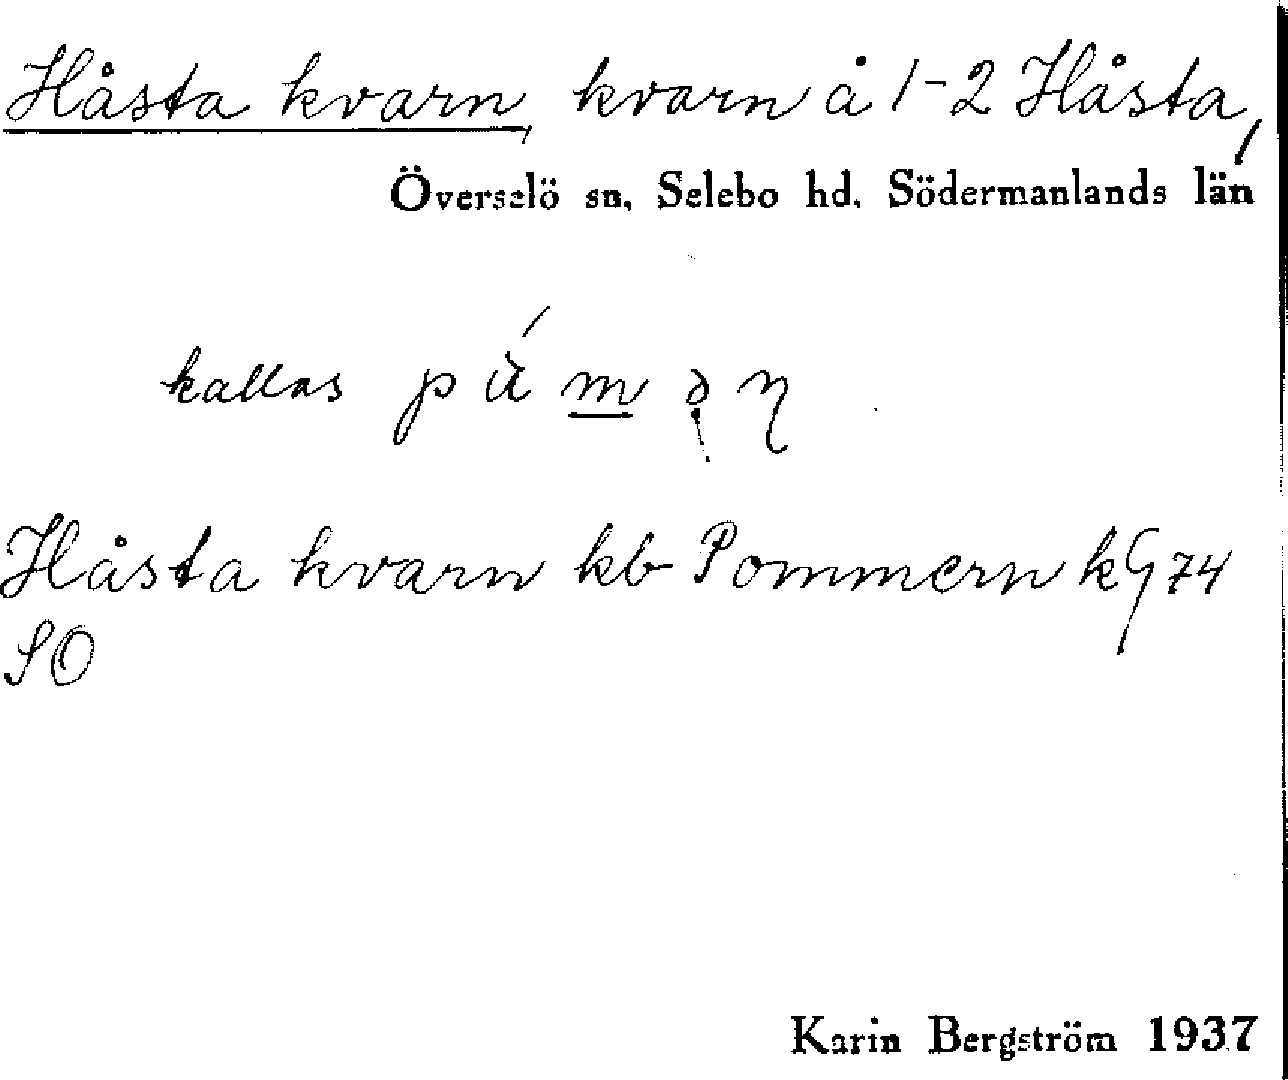 Håsta kvarn, kvarn å 1-2 Håsta,
Överselö sn, Selebo hd. Södermanlands län
kallas
Håsta kvarn kb Pommern kG 74
SO
Karin Bergström 1937